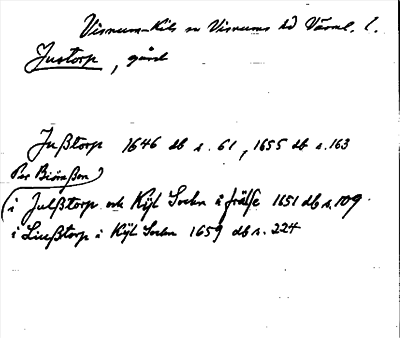 Visnum-Kils sn Visnums hd Värml. l.
Justorp, gård
Jußtorp 1646 db s. 61, 1655 db s. 163
Per Biörnßon
(i Julßtorp och Kijl Sochn i frälße 1651 db s. 109
i Liußtorp i Kijl Sochn 1659 db s. 224